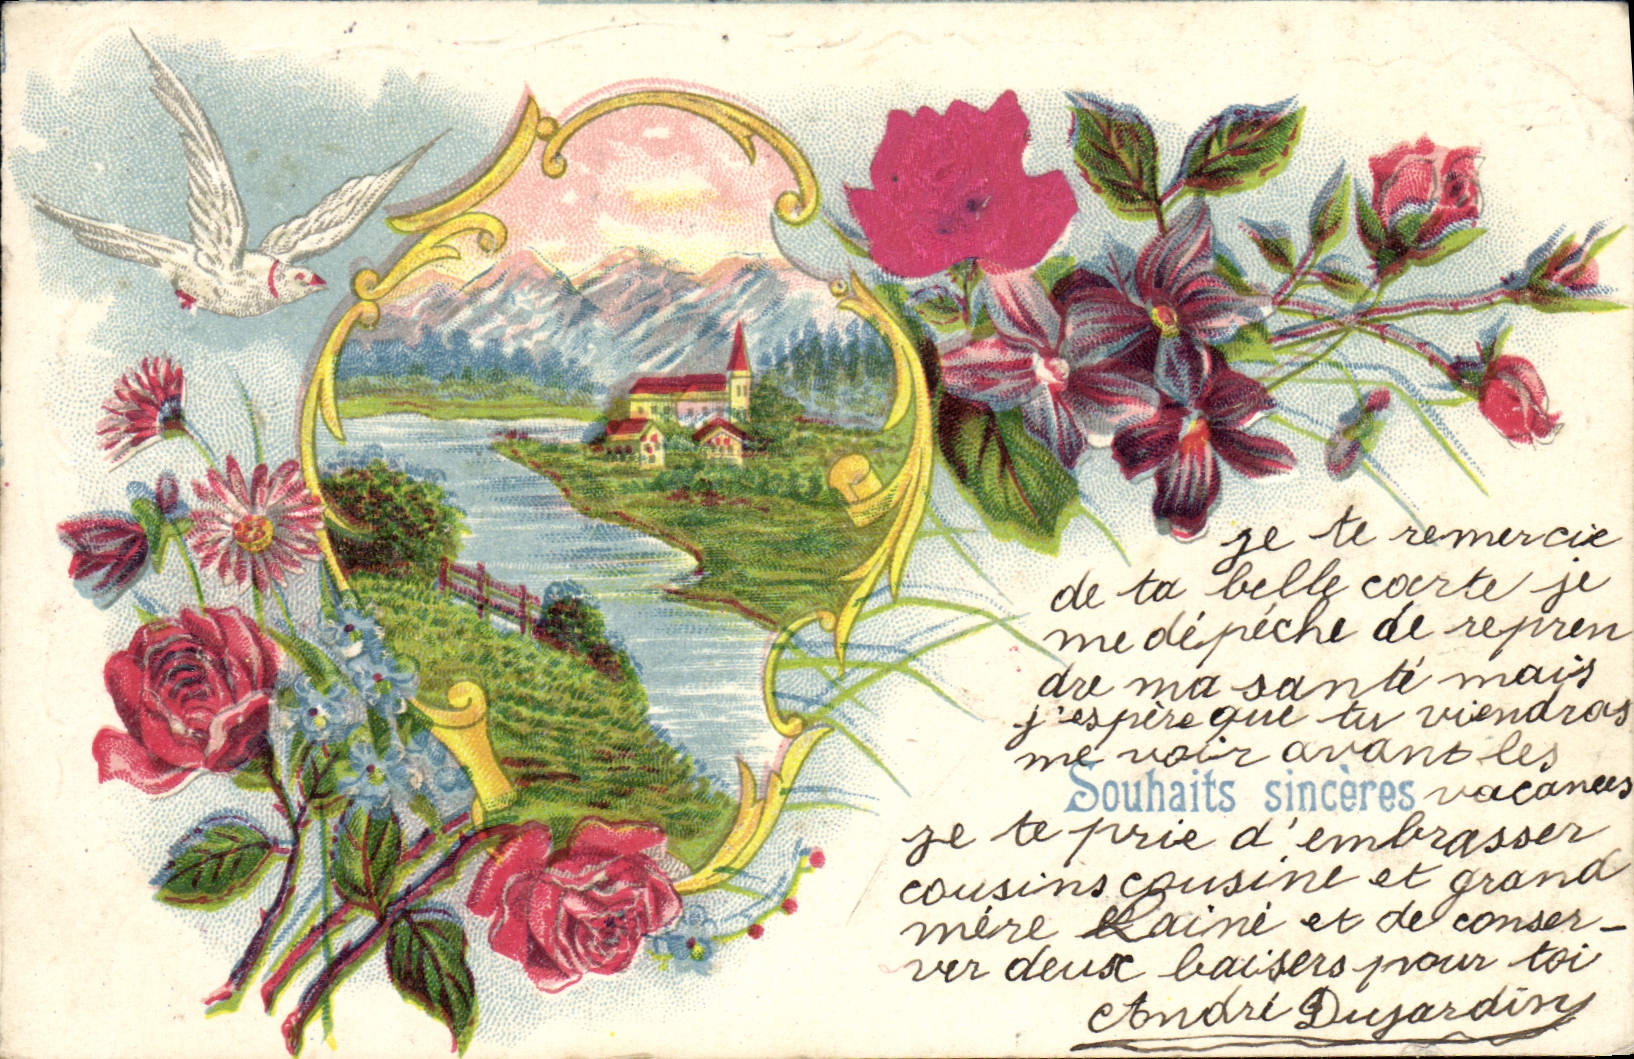 je te remercie
de ta belle carte je
me dépéche de repren
dre ma santé mais
j'espère que tu viendras
me voir avant les
Souhaits sincères vacances
je te prie d'embrasser
cousins cousine et grand
mére Lainé et de conser-
ver deux baisers pour toi
André Dujardin